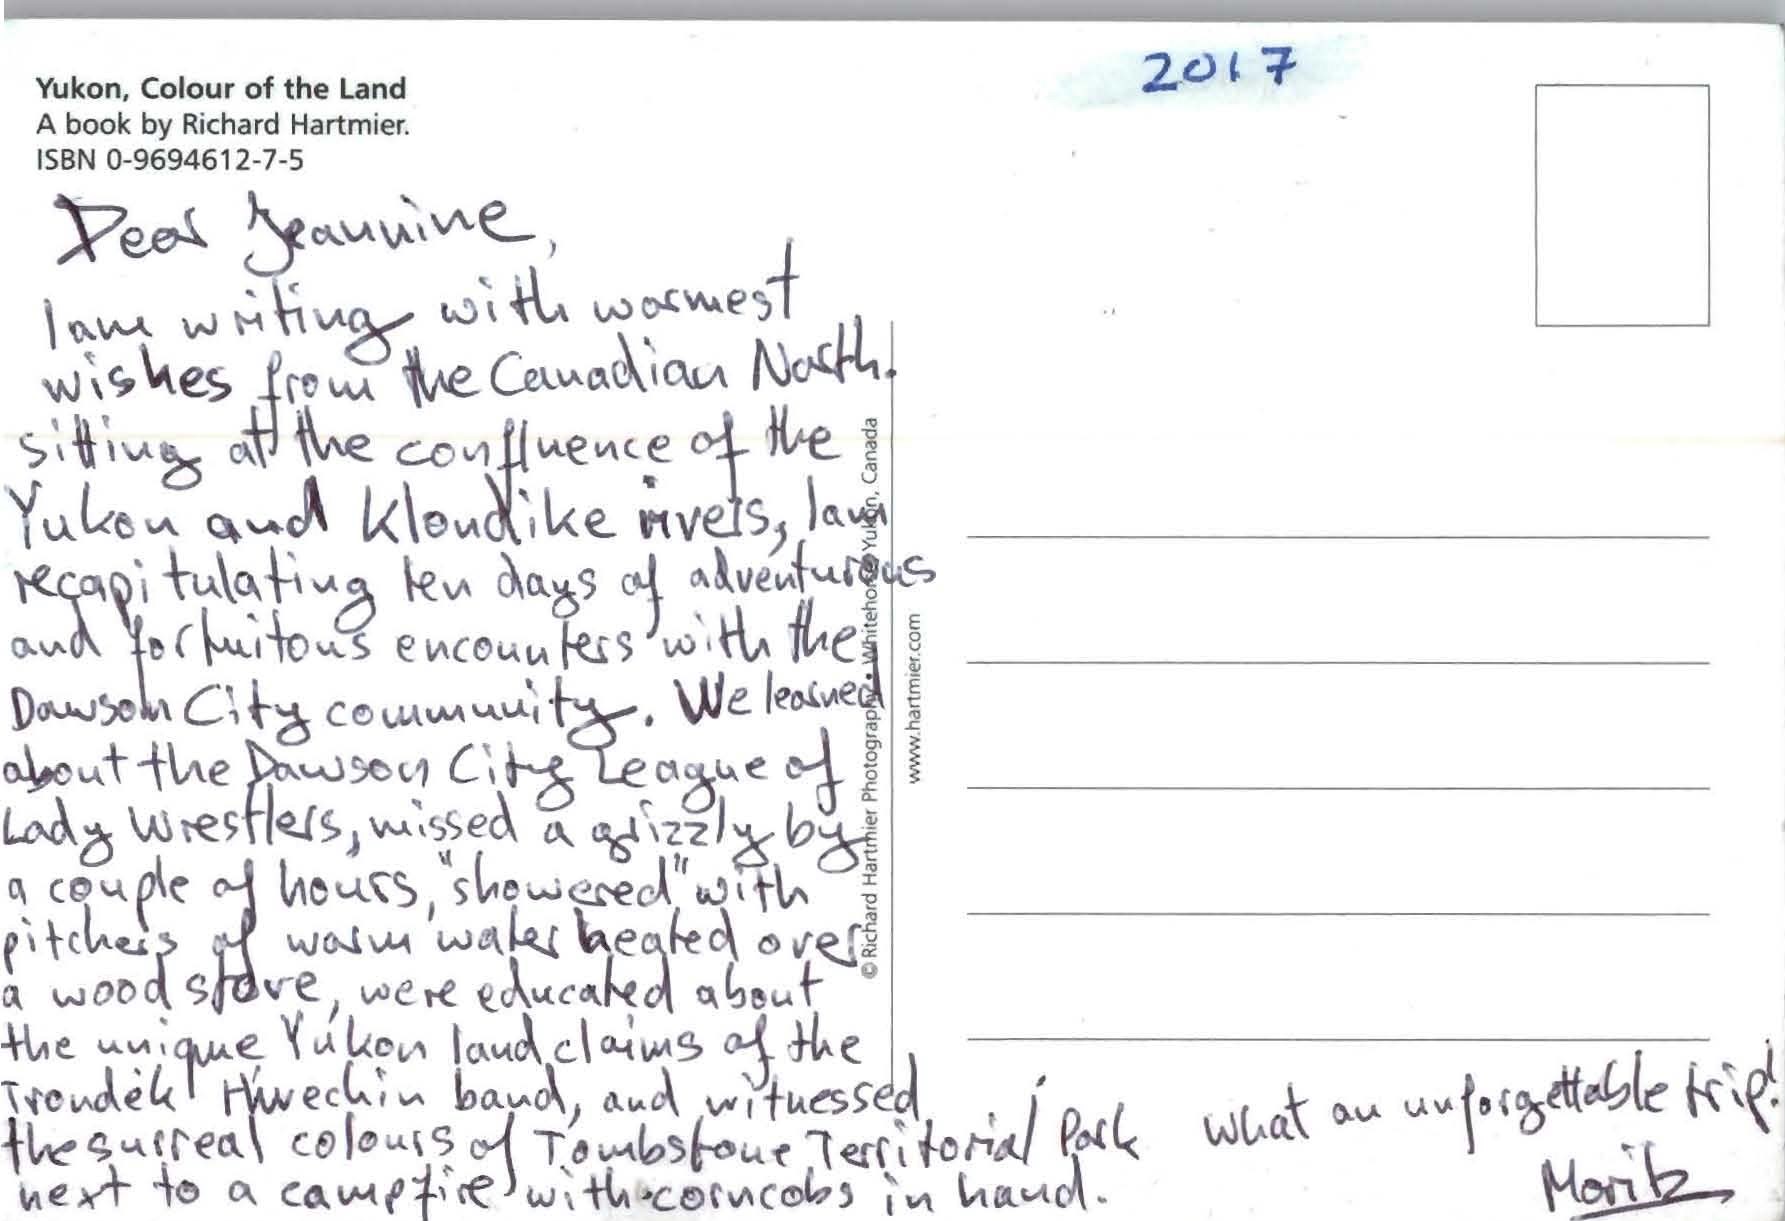 Yukon, Colour of the Land
A book by Richard Hartmier.
ISBN 0-9694612-7-5
2017
Dear Jeannine,
I am writing with warmest
wishes from the Canadian North.
sitting at the confluence of the
Yukon and Klondike rivers, I am
recapitulating ten days of adventurous
and fortuitous encounters with the
Dawson City community. We learned
about the Dawson City League of
Lady Wrestlers, missed a grizzly by
a couple of hours, "showered" with
pitchers of warm water heated over
a wood stove, were educated about
the unique Yukon land claims of the
Trondëk Hwëchin band, and witnessed
the surreal colours of Tombstone Territorial Park
next to a campfire with corncobs in hand.
What an unforgettable trip!
Moritz
© Richard Hartmier Photography • Whitehorse, Yukon, Canada
www.hartmier.com